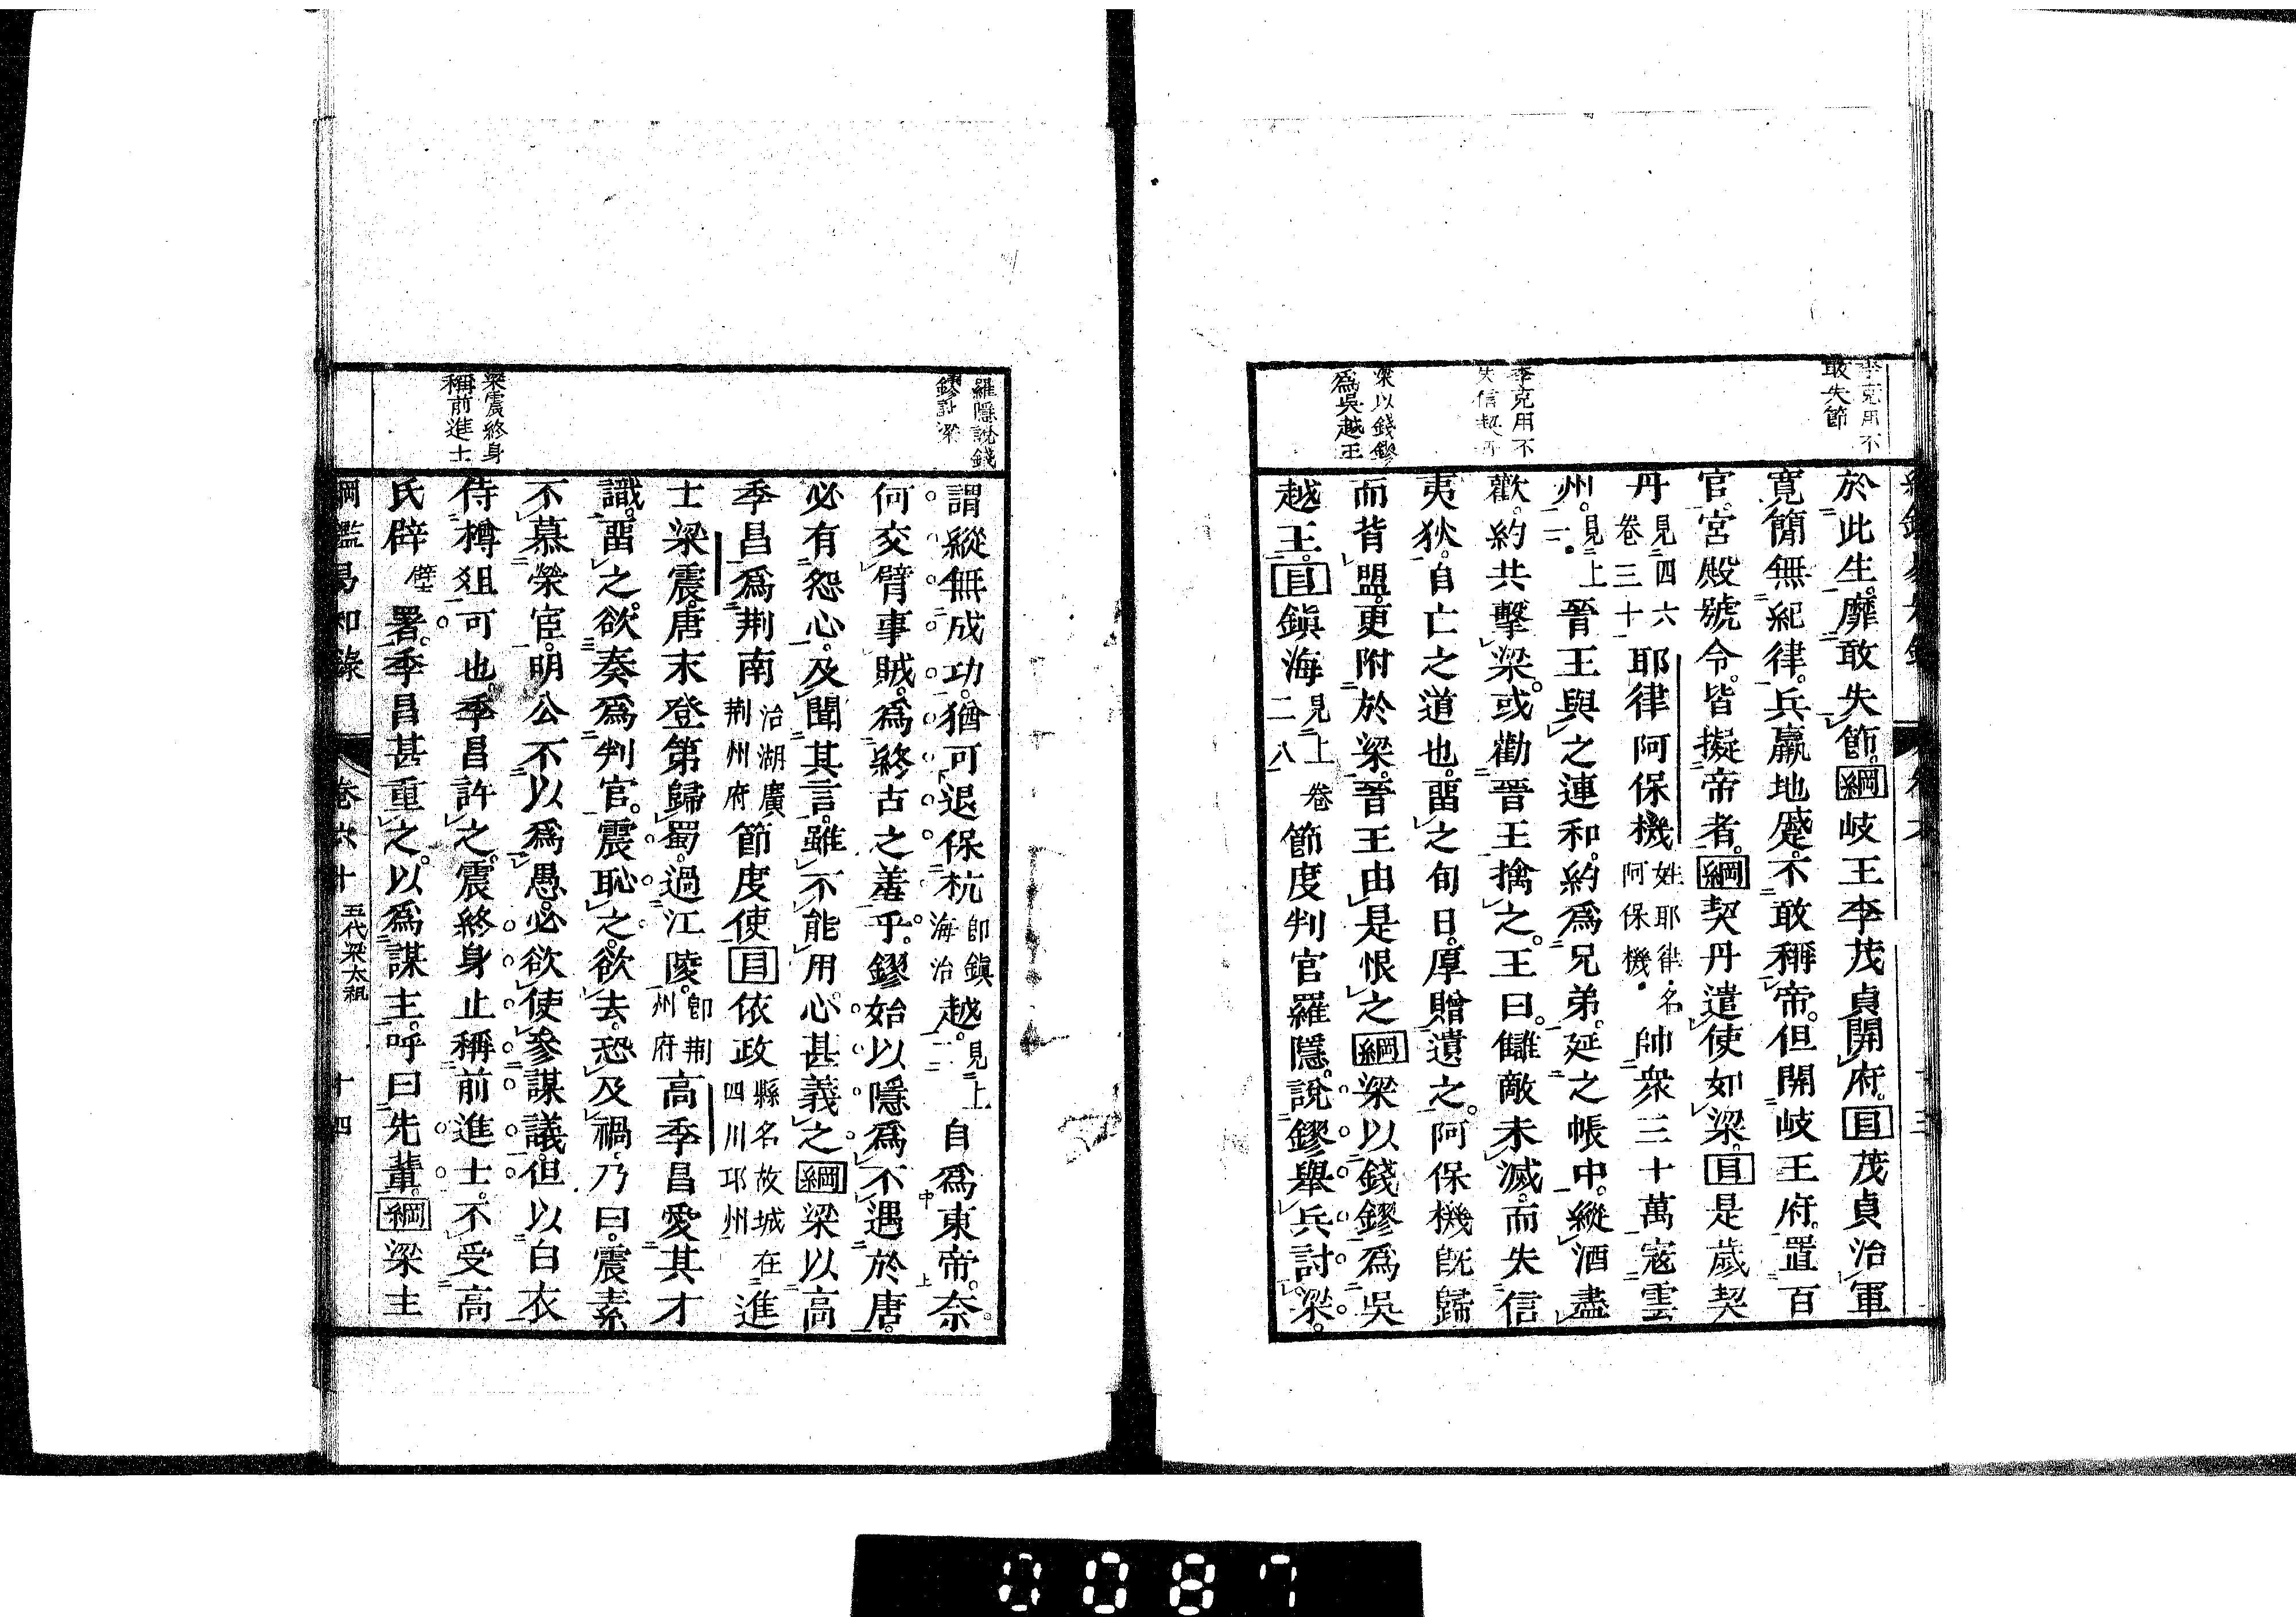 李克用不
敢失節
李克用不
失信契丹
梁以錢鏐
爲吳越王
於此生。靡敢失節。綱岐王李茂貞開府。目茂貞治軍
寬簡無紀律。兵羸地蹙。不敢稱帝。但開岐王府。置百
官。宮殿號令。皆擬帝者。綱契丹遣使如梁。目是歲契
丹見四六卷三十一耶律阿保機姓耶律名阿保機帥衆三十萬寇雲
州。見上二晉王與之連和。約爲兄弟。延之帳中。縱酒盡
歡。約共擊梁。或勸晉王擒之。王曰。讎敵未滅。而失信
夷狄。自亡之道也。畱之旬日。厚贈遺之。阿保機旣歸
而背盟。更附於梁。晉王由是恨之綱梁以錢鏐爲吳
越王。目鎭海見上卷二八節度判官羅隱。說鏐舉兵討梁。
羅隱說錢
鏐討梁
梁震終身
稱前進士
謂縱無成功。猶可退保杭卽鎭海治越。見上二三自爲東帝。奈
何交臂事賊。爲終古之羞乎。鏐始以隱爲不遇於唐。
必有怨心。及聞其言。雖不能用。心甚義之綱梁以高
季昌爲荆南治湖廣荆州府節度使目依政縣名故城在四川邛州進
士梁震。唐末登第歸蜀。過江陵。卽荆州府高季昌愛其才
識。畱之。欲奏爲判官。震恥之。欲去。恐及禍。乃曰。震素
不慕榮宦。明公不以爲愚。必欲使參謀議。但以白衣
侍樽俎可也。季昌許之。震終身止稱前進士。不受高
氏辟壁署。季昌甚重之。以爲謀主。呼曰先輩。綱梁主
綱鑑易知錄 卷六十 五代梁太祖 十四
0087